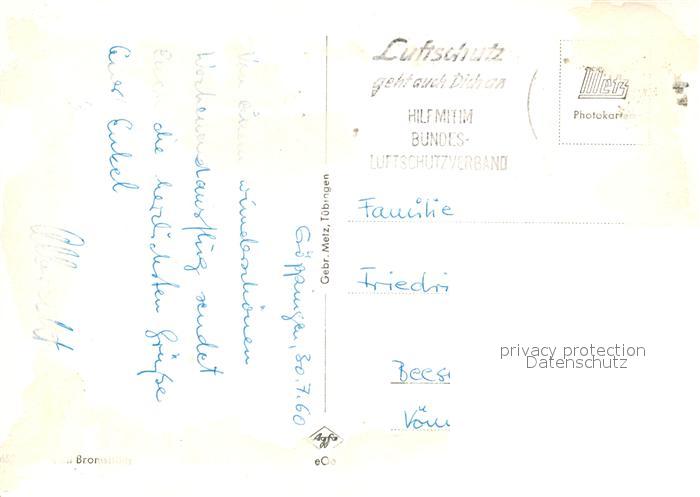 Göppingen, 30.7.60
Von einem wunderschönen
Wochenendausflug sendet
Euch die herzlichsten Grüße
Euer Enkel
Albrecht
Gebr. Metz, Tübingen
Luftschutz
geht auch Dich an
HILF MIT IM
BUNDES-
LUFTSCHUTZVERBAND
Metz
Photokarten
Familie
Friedri
Bees
privacy protection
Datenschutz
Agfa